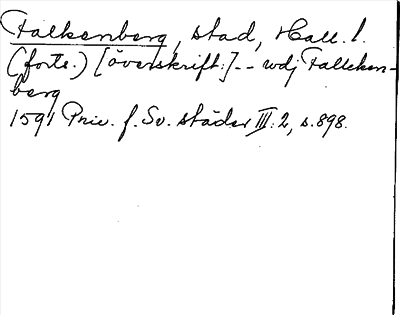 Falkenberg, stad, Hall. l.
(forts.) [överskrift:] -- wdj Falleken-
berg
1591 Priv. f. Sv. städer III:2, s. 898.